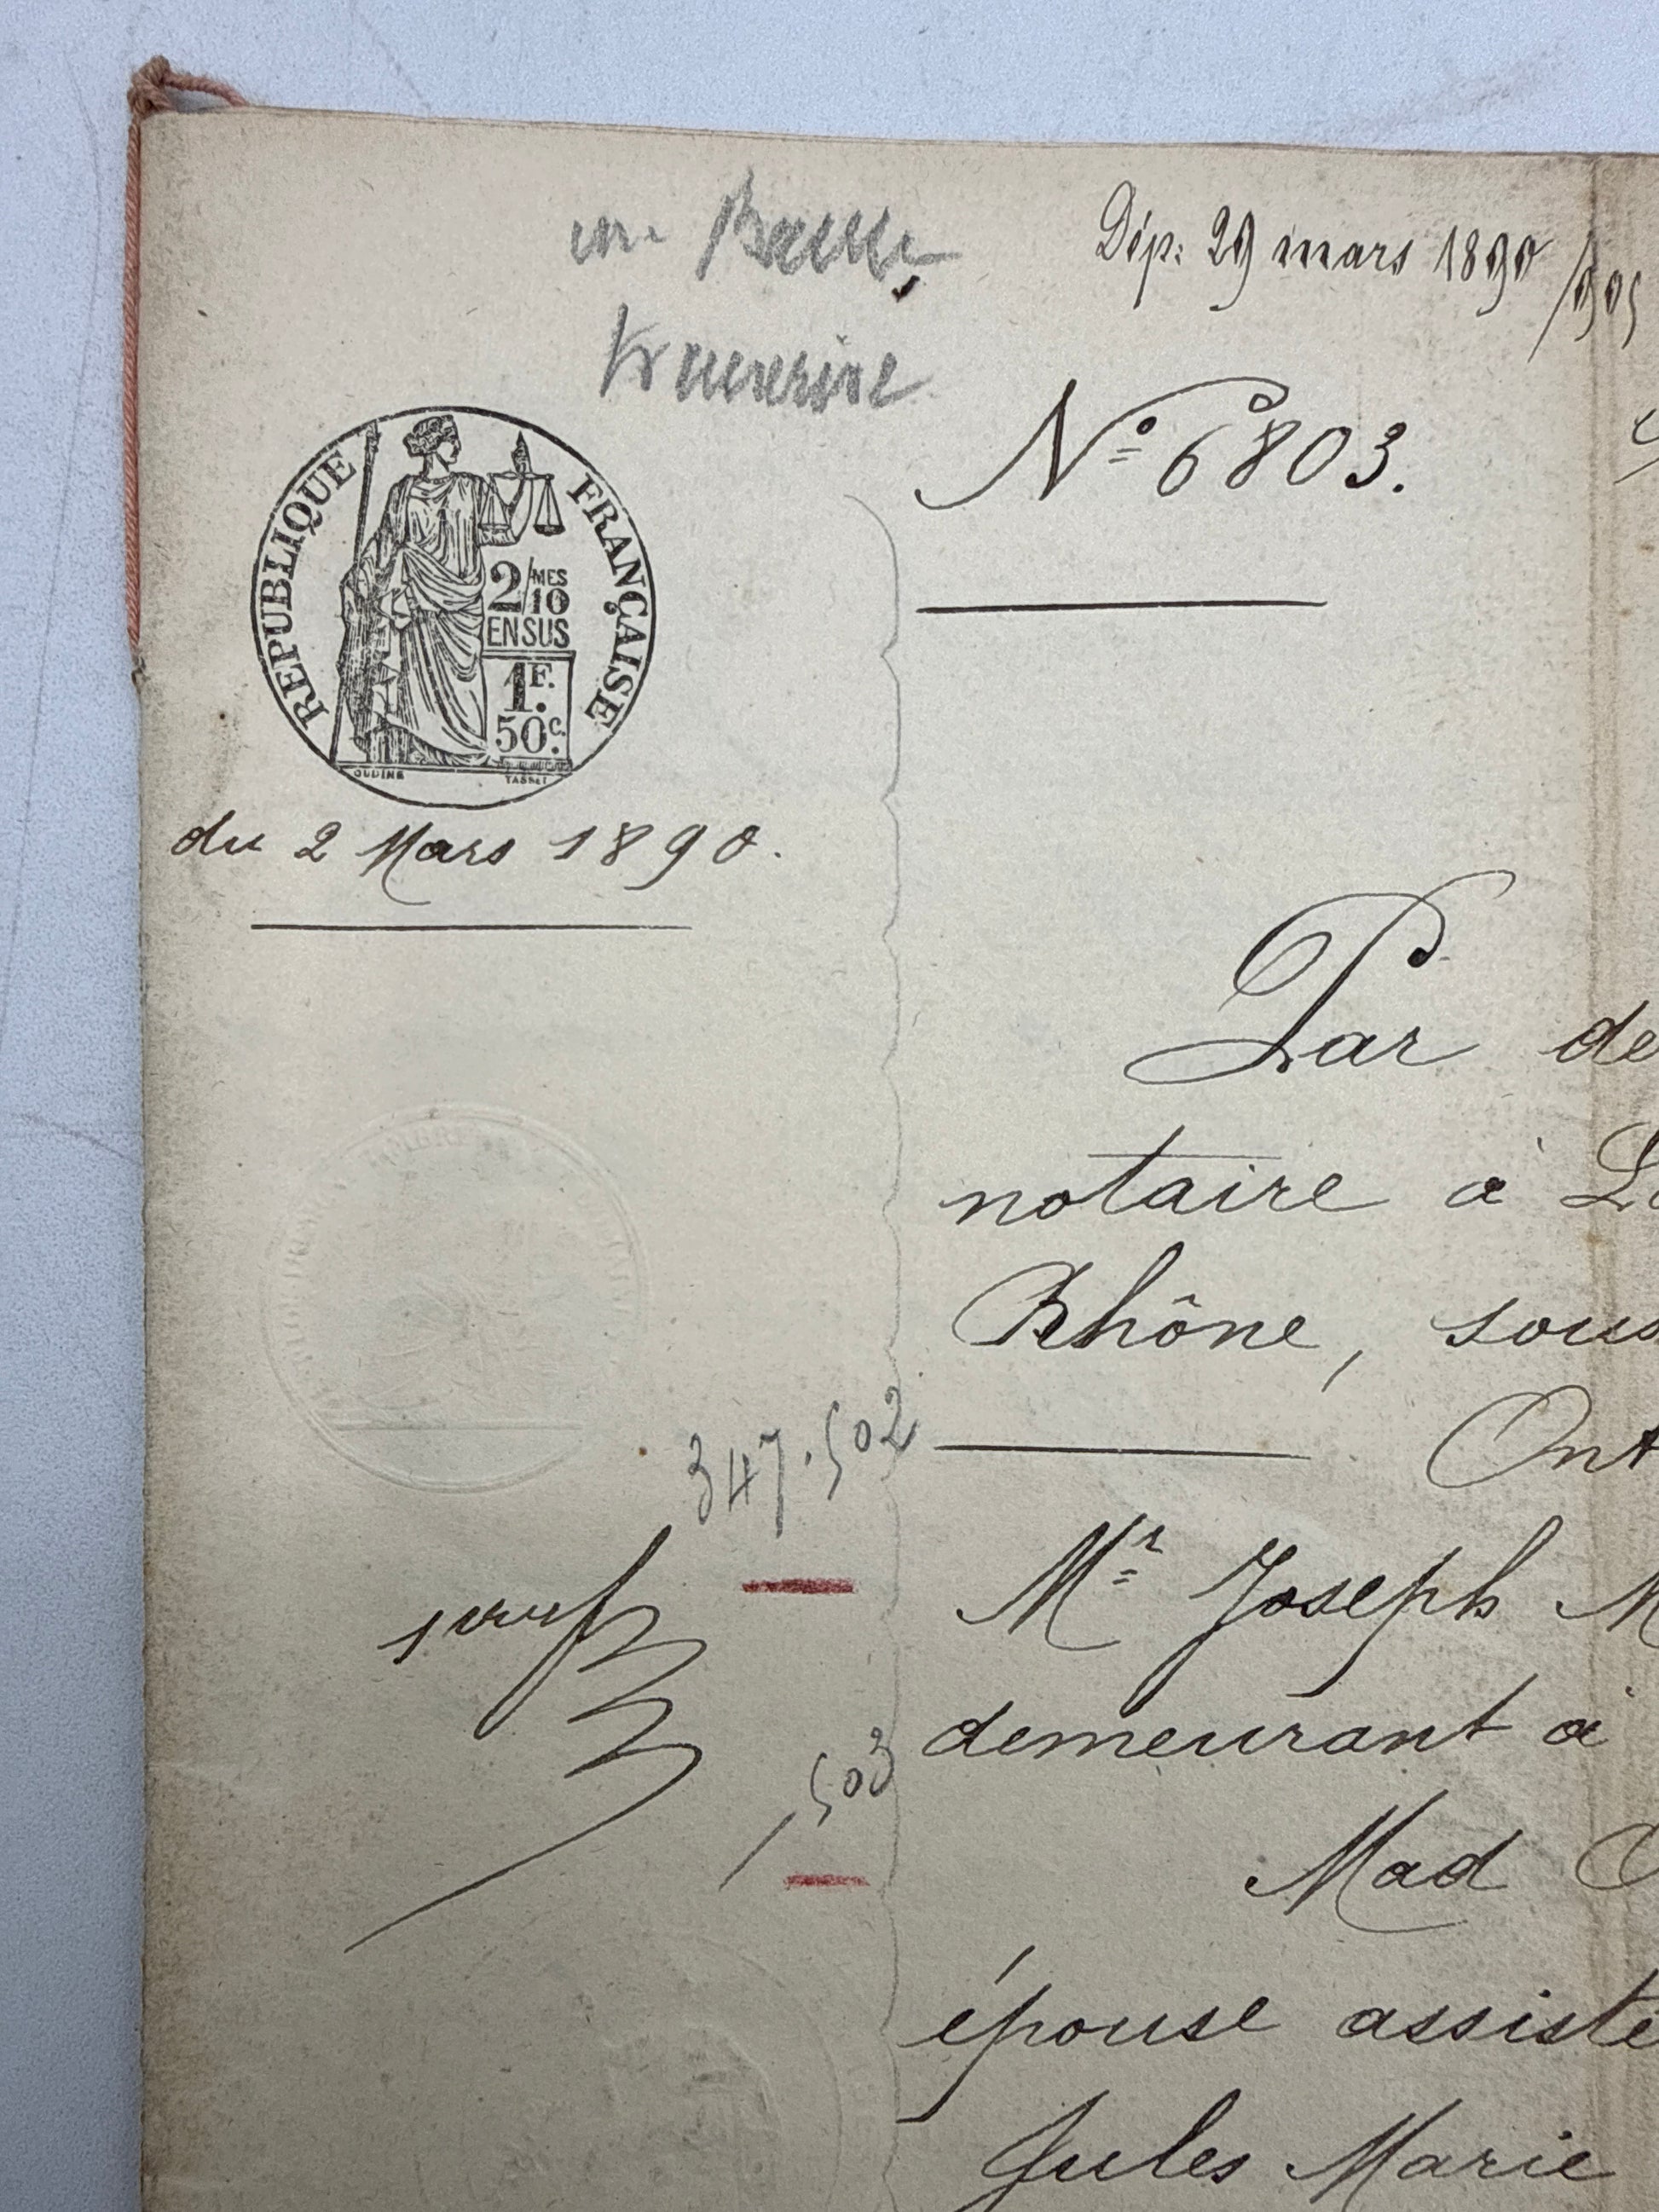 Dép: 29 mars 1890
Nº 6803.
REPUBLIQUE FRANÇAISE
2/10 MES
EN SUS
1F.
50c.
OUDINÉ TASSET
du 2 Mars 1890.
Par de
notaire à
Rhône, sous
347.502
Ont
Mr Joseph M
demeurant à
503
Mad
épouse assisté
Jules Marie